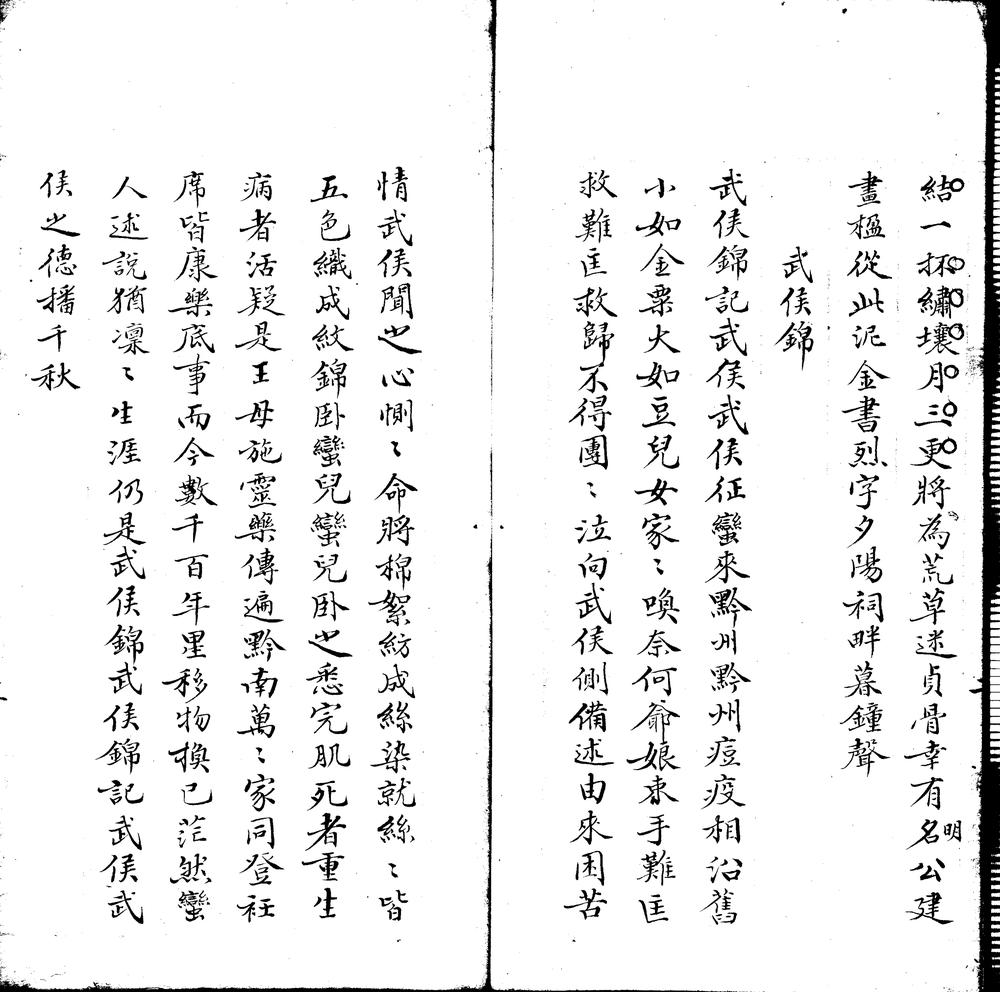 結一抔繡壤月三更將為荒草迷貞骨幸有名公建
明
畫楹從此泥金書烈字夕陽祠畔暮鐘聲
武侯錦
武侯錦記武侯武侯征蠻來黔州黔州痘疫相沿舊
小如金粟大如豆兒女家〻喚奈何爺娘束手難匡
救難匡救歸不得團〻泣向武侯側備述由來困苦
情武侯聞之心惻〻命將棉絮紡成絲染就絲〻皆
五色織成紋錦臥蠻兒蠻兒臥之悉完肌死者重生
病者活疑是王母施靈藥傳遍黔南萬〻家同登衽
席皆康樂底事而今數千百年星移物換已茫然蠻
人述說猶凜〻生涯仍是武侯錦武侯錦記武侯武
侯之德播千秋